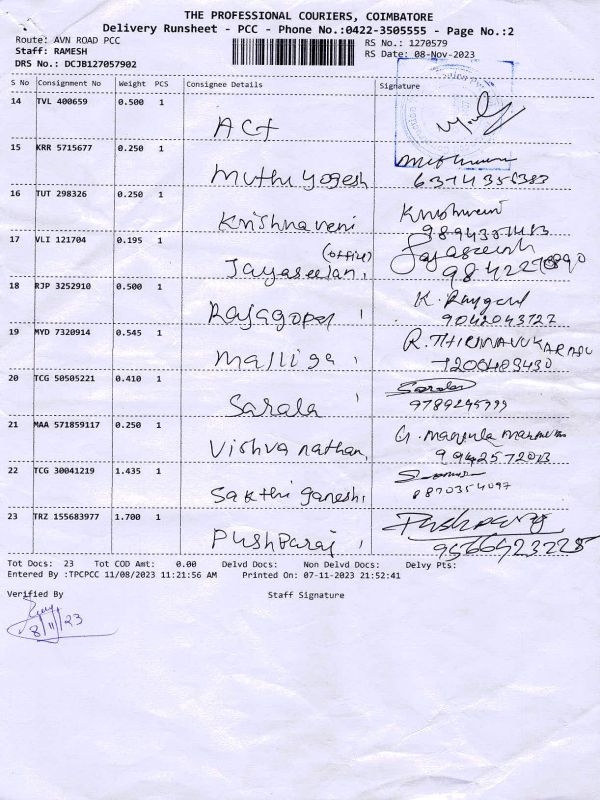 THE PROFESSIONAL COURIERS, COIMBATORE
Delivery Runsheet - PCC - Phone No.:0422-3505555 - Page No.:2
Route: AVN ROAD PCC
RS No.: 1270579
Staff: RAMESH
RS Date: 08-Nov-2023
DRS No.: DCJB127057902
S No Consignment No Weight PCS Consignee Details Signature
14 TVL 400659 0.500 1
ACT
15 KRR 5715677 0.250 1
Muthu yogesh 6374356383
16 TUT 298326 0.250 1
Krishnaveni
17 VLI 121704 0.195 1
(office)
Jayaseelan,
18 RJP 3252910 0.500 1
Rajagopal, 9042043727
19 MYD 7320914 0.545 1 R. THIRUNAVUKARASU
Malliga, 7200483430
20 TCG 50505221 0.410 1
Sarala,
21 MAA 571859117 0.250 1
Vishva nathan,
22 TCG 30041219 1.435 1
Sakthi ganesh, 8870354097
23 TRZ 155683977 1.700 1 Pushparaj
Pushparaj, 9566523225
Tot Docs: 23 Tot COD Amt: 0.00 Delvd Docs: Non Delvd Docs: Delvy Pts:
Entered By :TPCPCC 11/08/2023 11:21:56 AM Printed On: 07-11-2023 21:52:41
Verified By Staff Signature
8/11/23